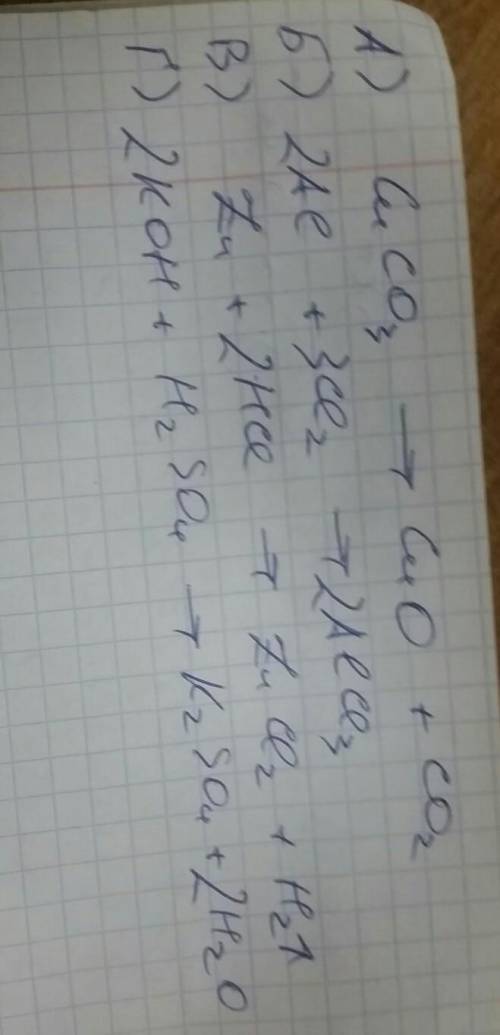 А) CuCO₃ → CuO + CO₂
Б) 2Al + 3Cl₂ → 2AlCl₃
В) Zn + 2HCl → ZnCl₂ + H₂↑
Г) 2KOH + H₂SO₄ → K₂SO₄ + 2H₂O